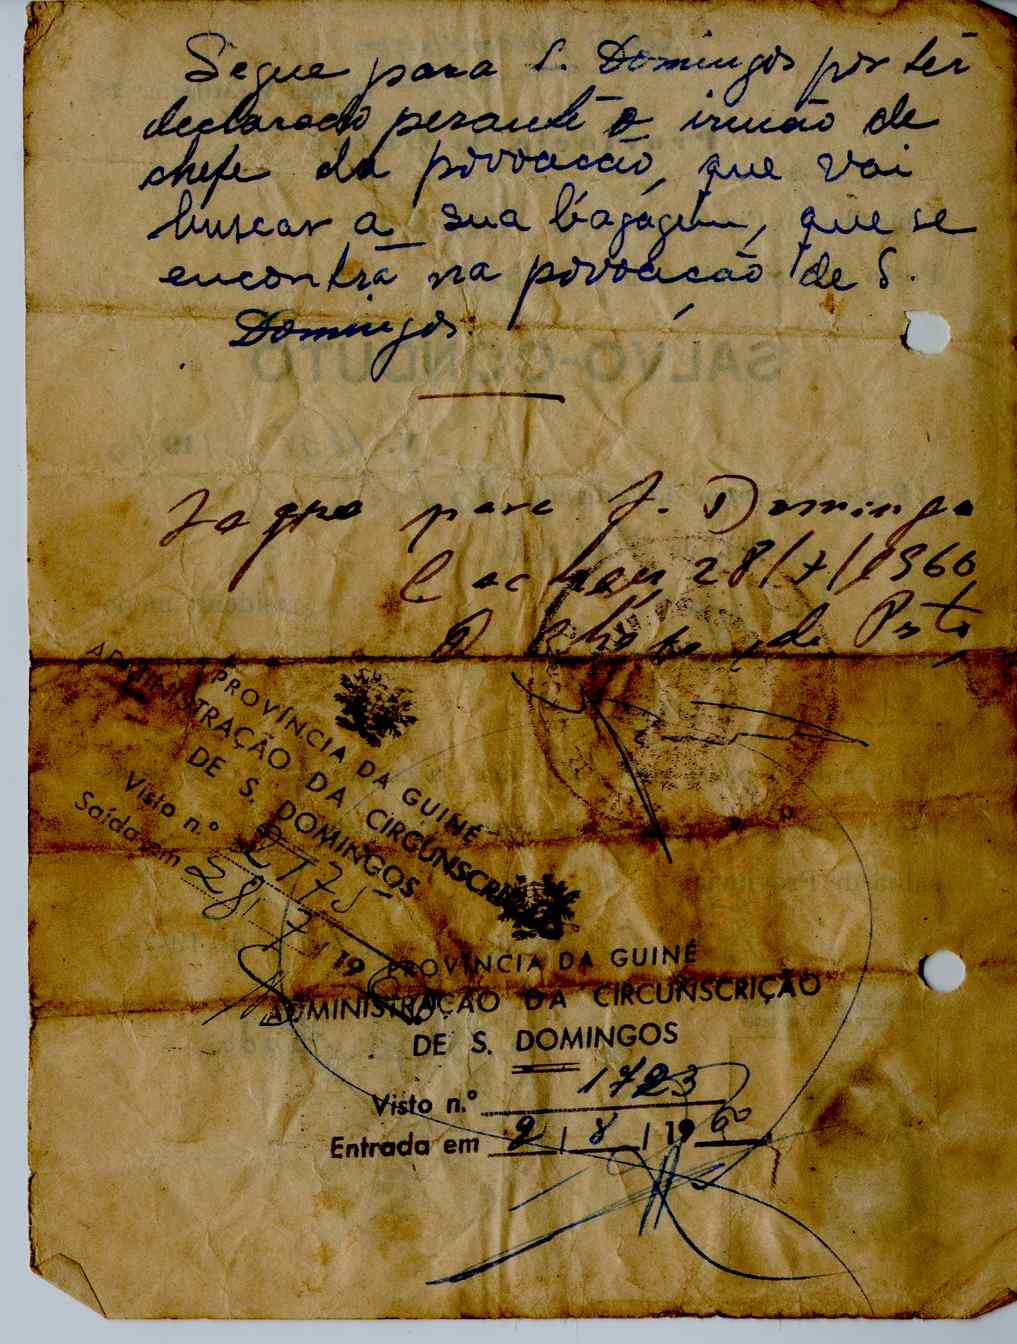 Segue para S. Domingos por ter
declarado perante o irmão de
chefe da povoação, que vai
buscar a sua bagagem, que se
encontra na povoação de S.
Domingos.
SALVO-CONDUTO
Segue para S. Domingos
Cacheu, 28/7/1960
O Chefe de Posto
PROVÍNCIA DA GUINÉ
ADMINISTRAÇÃO DA CIRCUNSCRIÇÃO
DE S. DOMINGOS
Visto n.º
Saída em 28/7/19
PROVÍNCIA DA GUINÉ
ADMINISTRAÇÃO DA CIRCUNSCRIÇÃO
DE S. DOMINGOS
Visto n.º 1723
Entrada em 2/8/1960